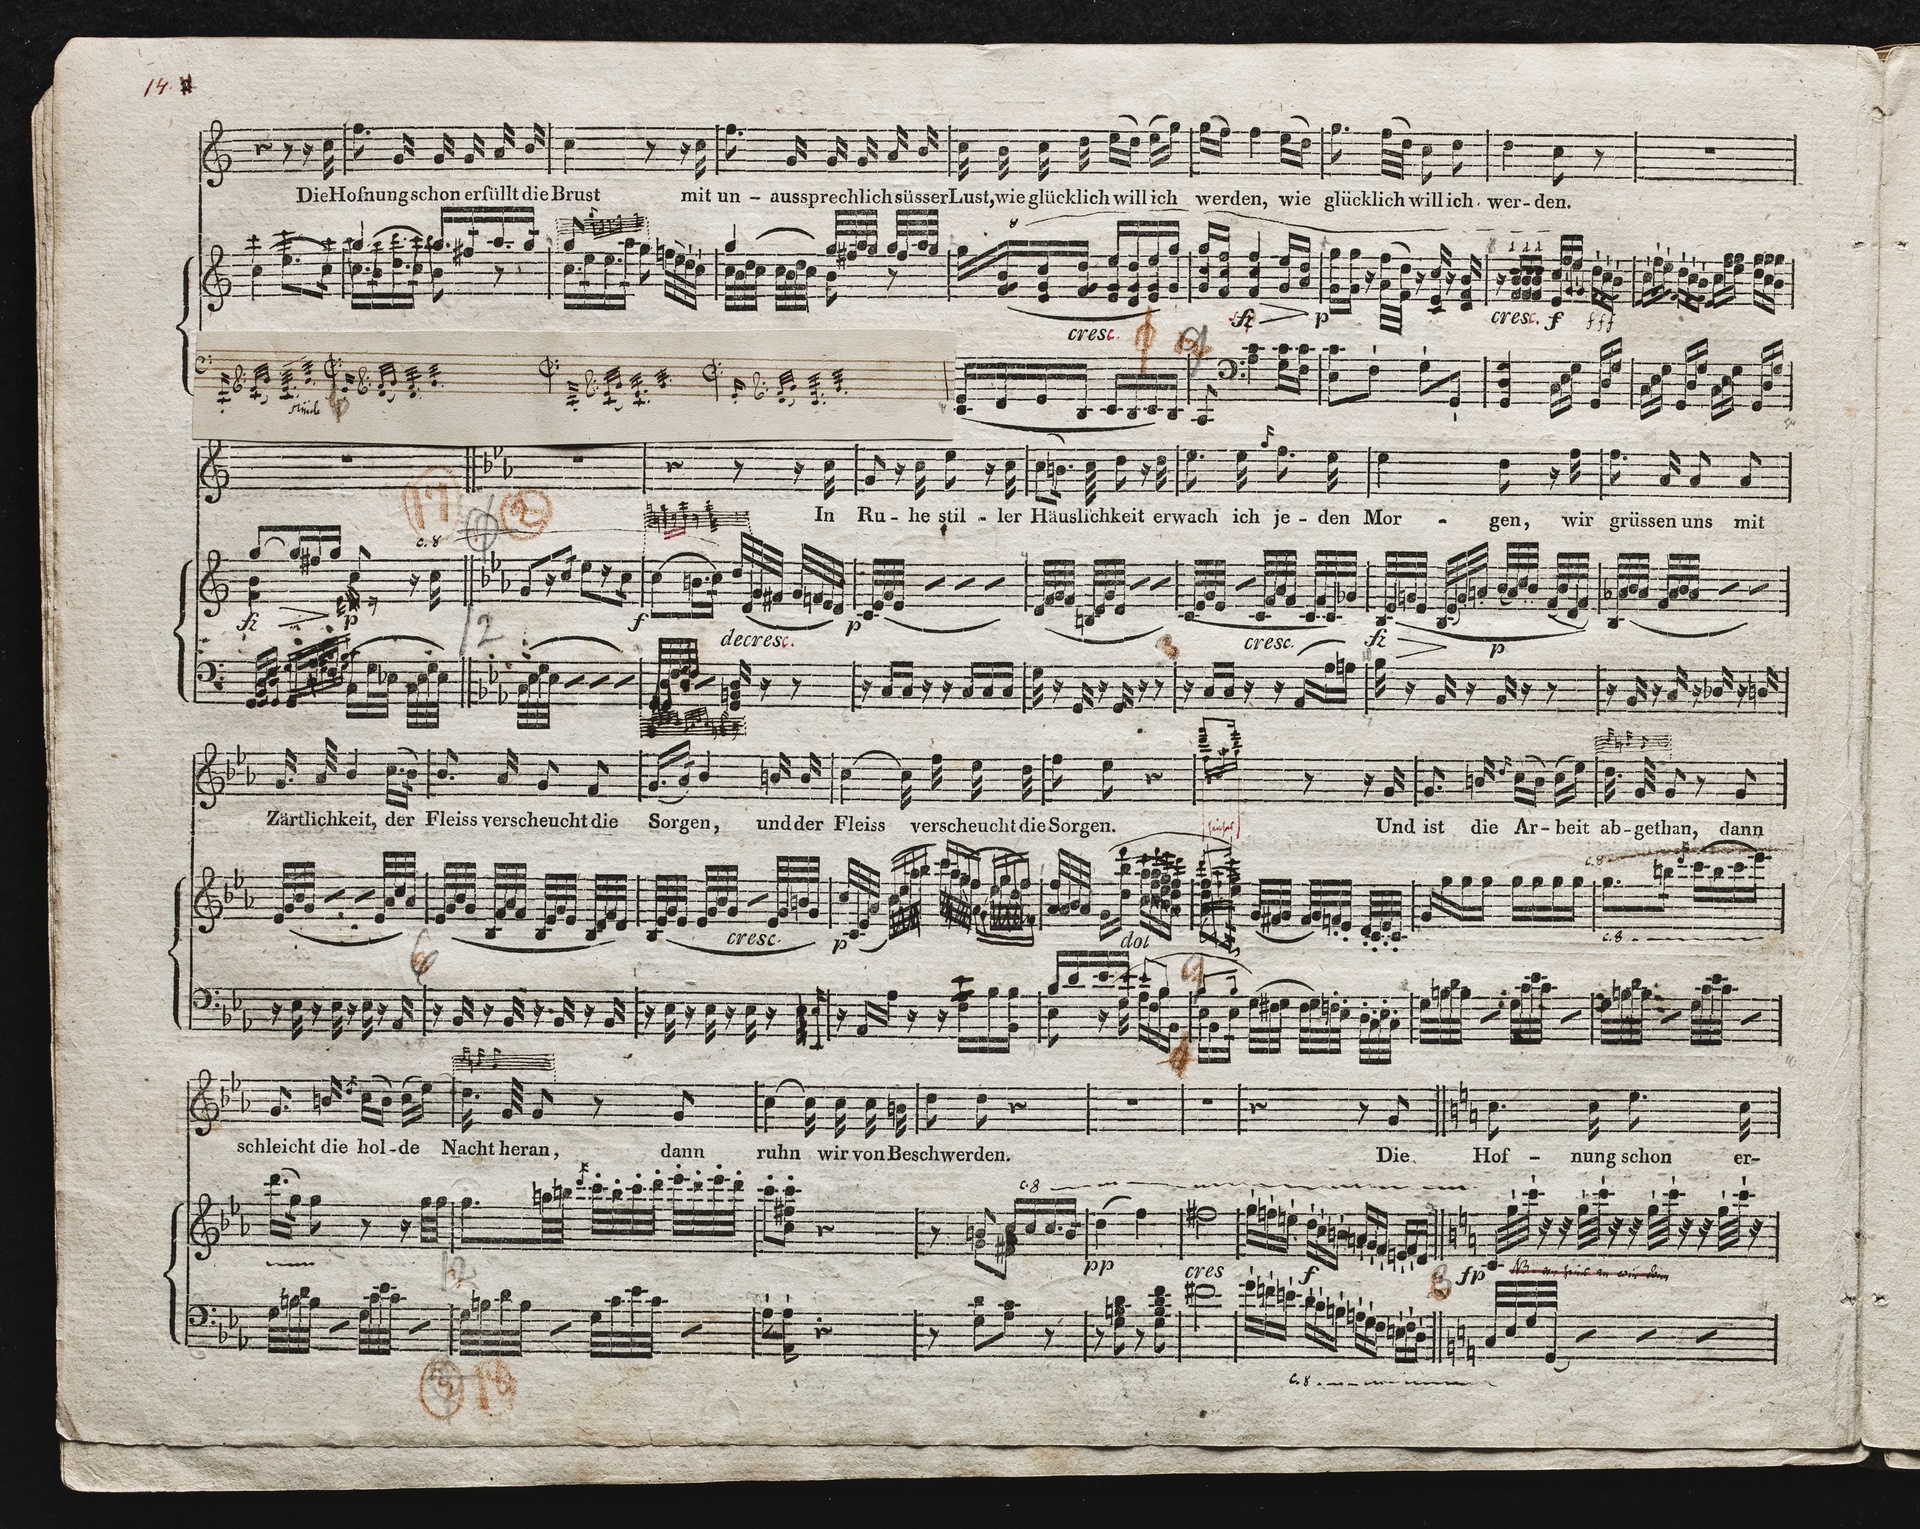 14.
Die Hofnung schon erfüllt die Brust mit un - aussprechlich süsser Lust, wie glücklich will ich werden, wie glücklich will ich wer - den.
cresc. fz p cresc. f fff
17 2
c. 8
In Ru - he stil - ler Häuslichkeit erwach ich je - den Mor - gen, wir grüssen uns mit
fz p f decresc. p cresc. fz p
12
3
Zärtlichkeit, der Fleiss verscheucht die Sorgen, und der Fleiss verscheucht die Sorgen. Und ist die Ar - beit ab - gethan, dann
c. 8
cresc. p dol c. 8
6
schleicht die hol - de Nacht heran, dann ruhn wir von Beschwerden. Die Hof - nung schon er-
c. 8
pp cres f fp
12
c. 8
18